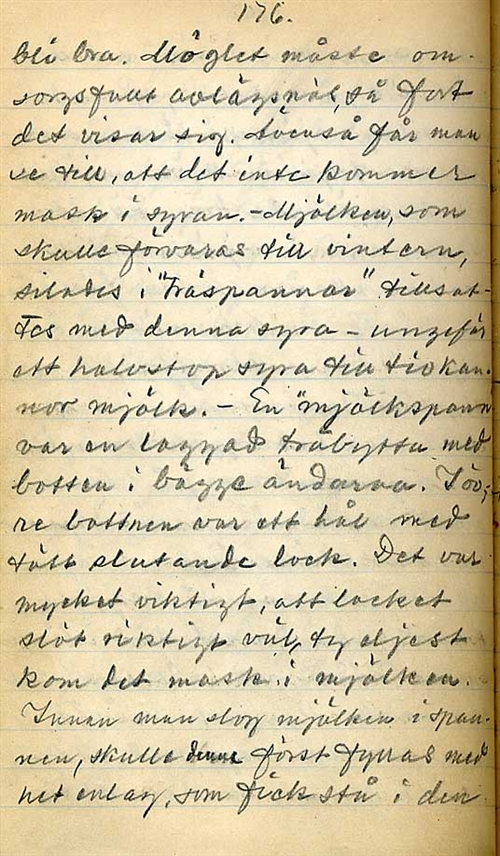 176.
bli bra. Möglet måste om-
sorgsfullt avlägsnas, så fort
det visar sig. Likaså får man
se till, att det inte kommer
mask i syran. - Mjölken, som
skulle förvaras till vintern,
silades i "träspannar" tillsat-
tes med denna syra - ungefär
ett halvstop syra till tio kan-
nor mjölk. - En "mjölkspann"
var en laggad träbytta med
botten i bägge ändarna. I öv-
re bottnen var ett hål med
tätt slutande lock. Det var
mycket viktigt, att locket
slöt riktigt väl, ty eljest
kom det mask i mjölken.
Innan man slog mjölken i span-
nen, skulle denna först fyllas med
het enlag, som fick stå i den